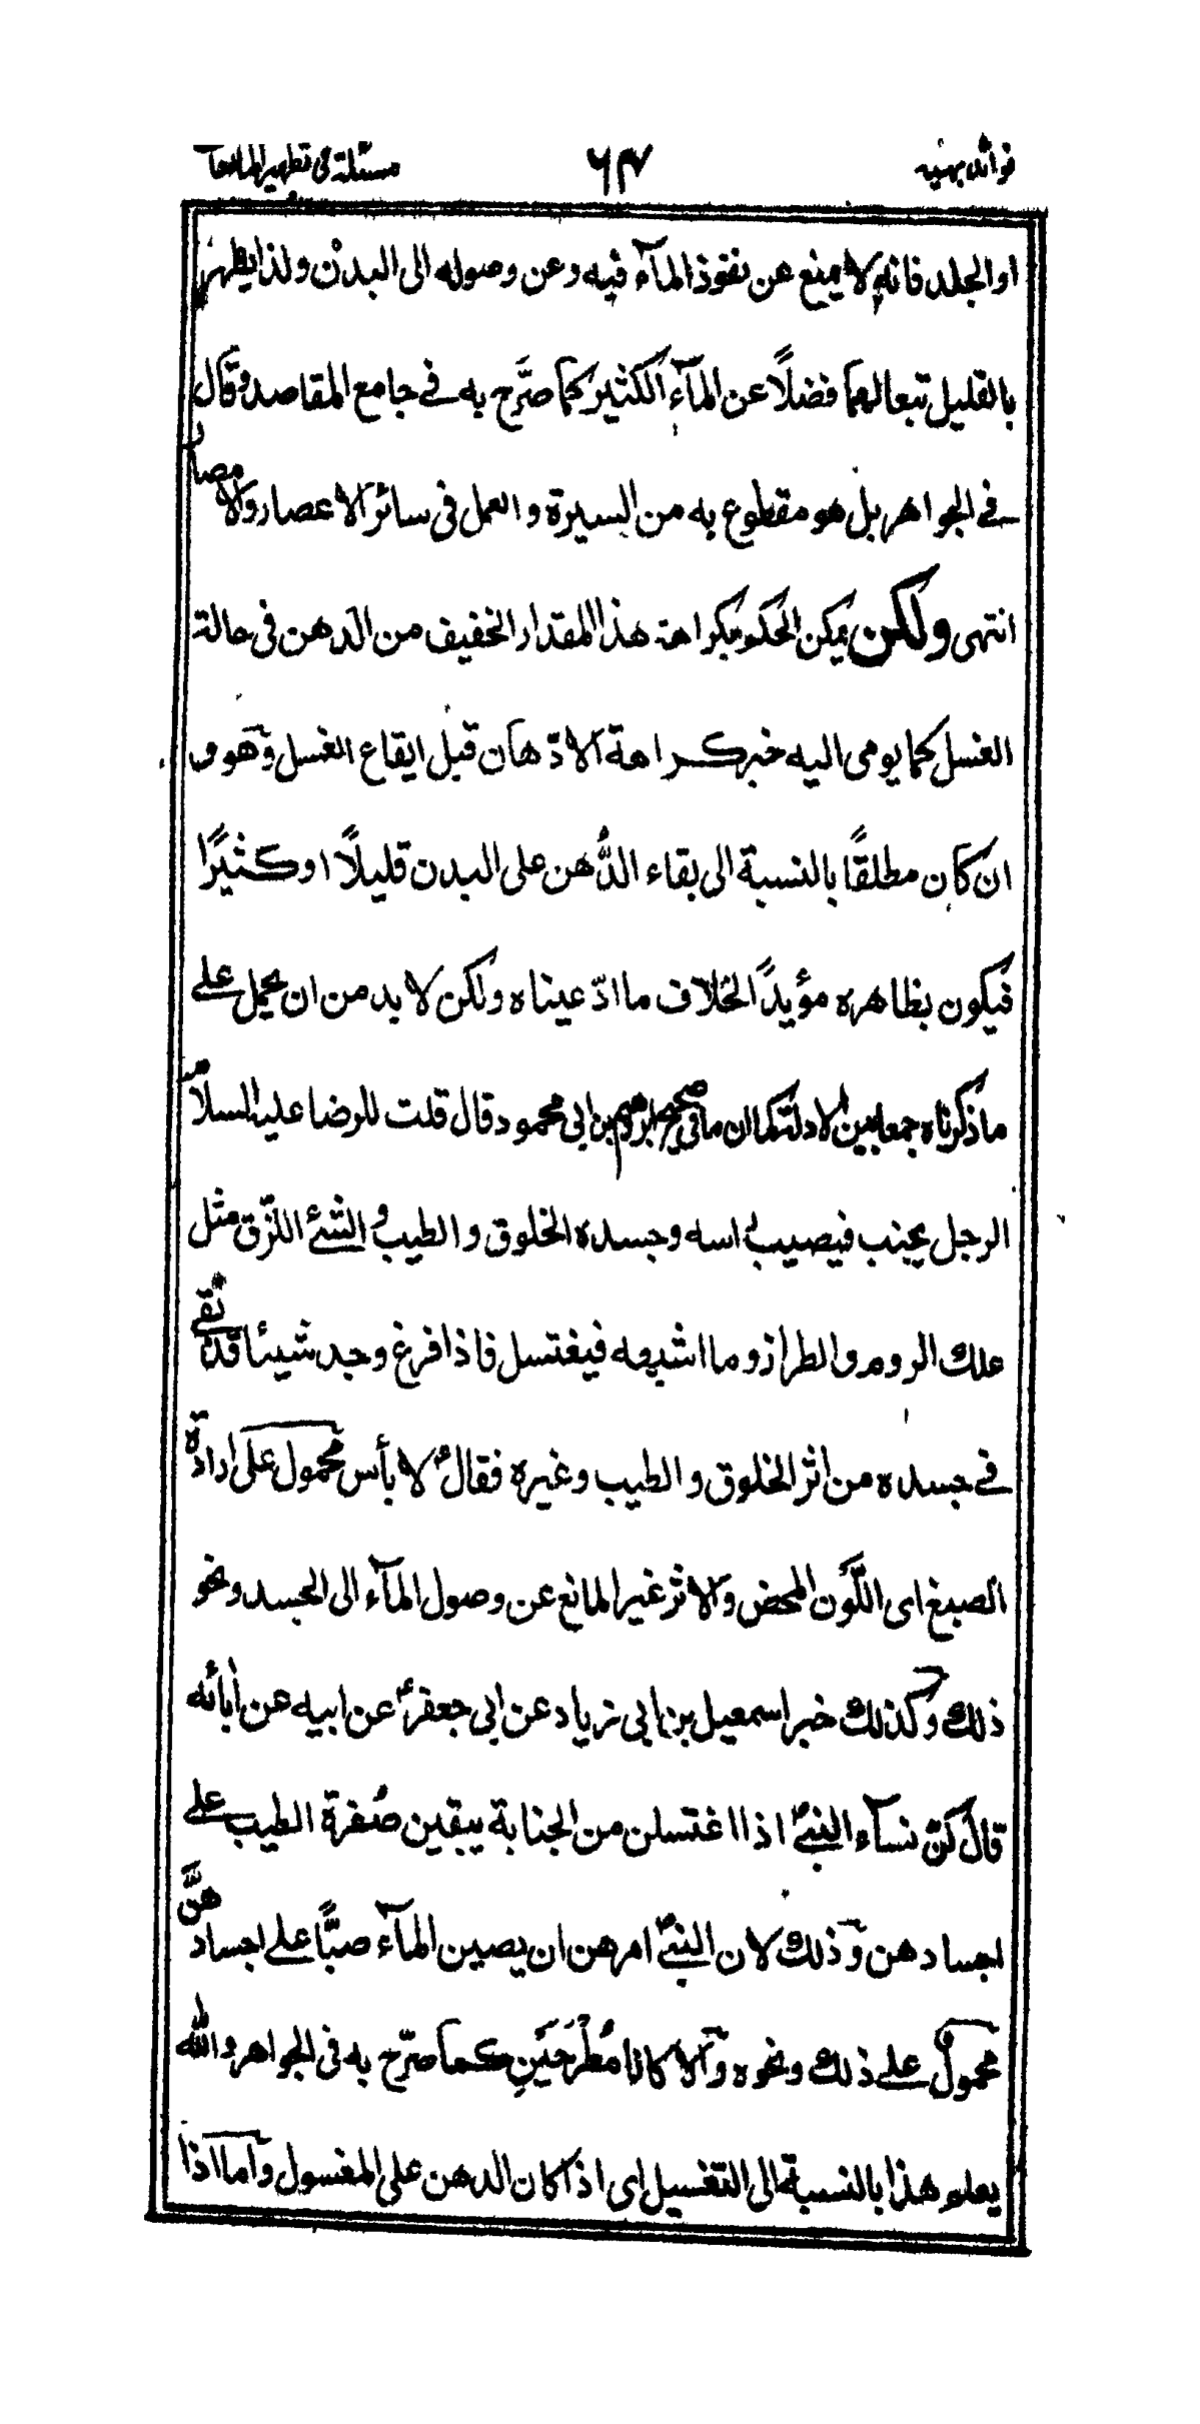 فوائد بهية ٦٤ مسئلة في تطهير المايعات
او الجلد فانه لا يمنع عن نفوذ المآء فيه وعن وصوله الى البدن ولذا يطهر
بالقليل تبعا لهما فضلًا عن المآء الكثير كما صرَّح به في جامع المقاصد وقال
في الجواهر بل هو مقطوع به من السيرة والعمل في سائر الاعصار والامصار
انتهى ولكن يمكن الحكم بكراهة هذا المقدار الخفيف من الدهن في حالة
الغسل كما يومى اليه خبر كراهة الادّهان قبل ايقاع الغسل وهو و
ان كان مطلقًا بالنسبة الى بقاء الدُّهن على البدن قليلًا او كثيرًا
فيكون بظاهره مؤيدًا لخلاف ما ادّعيناه ولكن لا بد من ان يحمل على
ما ذكرناه جمعا بين الادلة كما ان ما في صحيح ابراهيم بن ابي محمود قال قلت للرضا عليه السلام
الرجل يجنب فيصيب راسه وجسده الخلوق والطيب والشئ اللزق مثل
علك الروم والطراز وما اشبهه فيغتسل فاذا فرغ وجد شيئا قد بقى
في جسده من اثر الخلوق والطيب وغيره فقالؑ لا بأس محمول على ارادة
الصبغ اى اللَّون المحض والاثر غير المانع عن وصول المآء الى الجسد ونحو
ذلك وكذلك خبر اسمعيل بن ابى زياد عن ابى جعفرؑ عن ابيه عن اٰبائه
قال كنّ نسآء النبىؐ اذا اغتسلن من الجنابة يبقين صُفرة الطيب على
اجسادهن وذلك لان النبىؐ امرهن ان يصببن المآء صبًّا على اجسادهنَّ
محمول على ذلك ونحوه والا كانا مُطْرَحَيْنِ كما صرّح به فى الجواهر والله
يعلم هذا بالنسبة الى التغسيل اى اذا كان الدهن على المغسول واما اذا